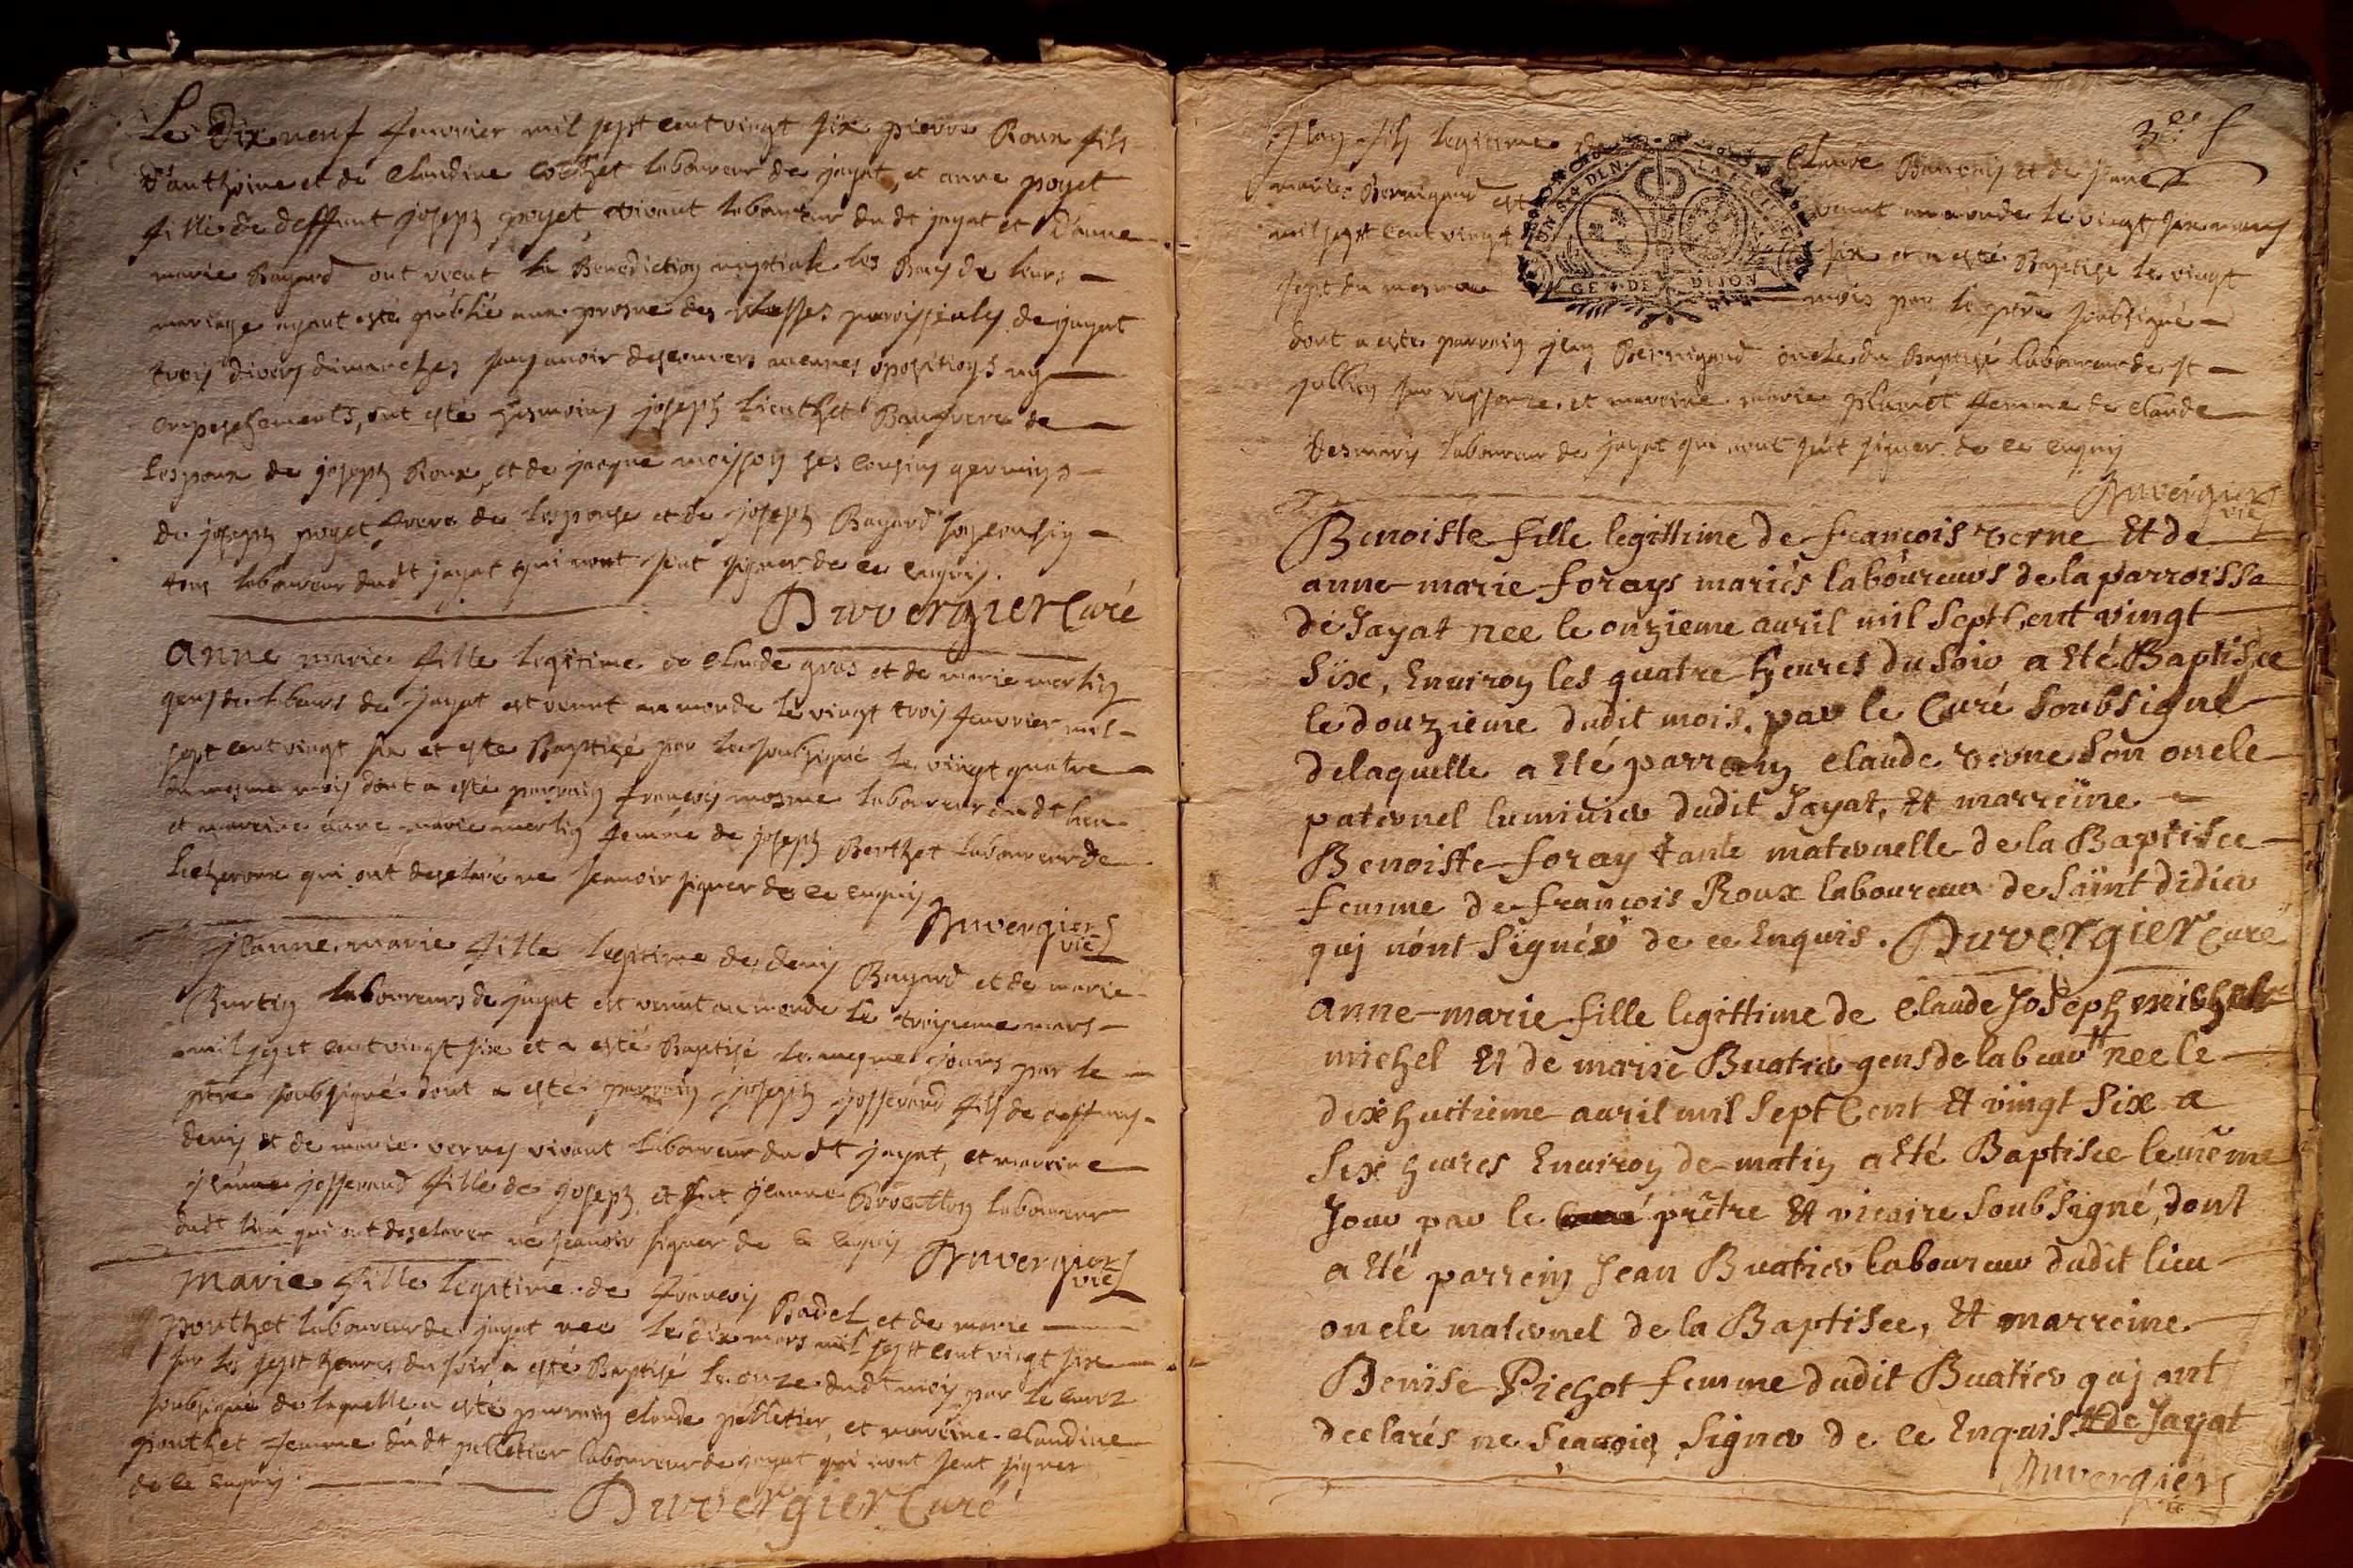 Le Dix neuf feuvrier mil sept cent vingt six pierre Roux fils
d'anthoine et de Claudine Cochet laboureur de jayat, et anne poyet
fille de deffunt joseph poyet, vivant laboureur du dt jayat et d'anne
marie Bayard ont receut la Benediction nuptiale les Bans de leurs
mariage ayant esté publié aux prosne des Messes paroissiales de jayat
trois divers dimanches sans avoir descouvers aucunes opositions ny
empeschements, ont esté tesmoins joseph Beaufrere de
lespoux de joseph Roux, et de jacque moisson ses cousins germains
de joseph poyet frere de lespouse et de joseph Bayard son cousin
tous laboureur dudt jayat qui nont sceut signer de ce enquis.
Duvergier Curé
Anne marie fille legitime de Claude gros et de marie merlin
gens de labeurs de jayat est venut au monde le vingt trois feuvrier mil
sept cent vingt six et esté Baptisé par le soubsigné le vingt quatre
du mesme mois dont a esté parrain françois mosme laboureur du dt lieu
et marraine anne marie merlin femme de joseph Berthet laboureur de
Lecheroux qui ont desclaré ne scauoir signer de ce enquis
Duvergier vic
jeanne marie fille legitime de denis Bayard et de marie
Burtin laboureurs de jayat est venut au monde le troisieme mars
mil sept cent vingt six et a esté Baptisé le mesme jours par le
ptre soubsigné dont a esté parrain joseph josserand fils de deffunt
denis et de marie vernes vivant laboureur du dt jayat, et marraine
jeanne josserand fille de joseph, et jeanne laboureur
dudt lieu qui ont desclarer ne scauoir signer de ce enquis
Duvergier vic
Marie fille legitime de françois Badel et de marie
ponthet laboureur de jayat nee le dix mars mil sept cent vingt six
sur les sept heures du soir a esté Baptisé le onze dudt mois par le curé
soubsigné de laquelle a esté parrain Claude pelletier, et marraine Claudine
ponthet femme du dt pelletier laboureur de jayat qui nont sceut signer
de ce enquis
Duvergier Curé
3e f
jean fils legitime de Claude et de jeane
marie Bernigaud est venut au monde le vingt six mars
mil sept cent vingt six et a esté Baptisé le vingt
sept du mesme mois par le ptre soubsigné
GEN DE DIJON
dont a esté parrain jean Bernigaud oncle du Baptisé laboureur de st
jullien sur reyssouze et marraine marie femme de Claude
Desmaris laboureur de jayat qui nont sceut signer de ce enquis
Duvergier vic
Benoiste fille legittime de françois verne Et de
anne marie forays mariés laboureurs de la parroisse
de Jayat nee le onzieme auril mil Sept Cent vingt
Six, Enuiron les quatre heures du Soir a Eté Baptisée
le douzieme dudit mois, par le Curé Soubsigné
de laquelle a Eté parrain Claude verne Son oncle
paternel luminier dudit Jayat, Et marreine
Benoiste foray tante maternelle de la Baptisée
femme de françois Roux laboureur de Saint didier
quj nónt Signés de ce Enquis. Duvergier Curé
anne-marie fille legittime de Claude Joseph michel
michel Et de marie Buatier gens de labeur nee le
dix huitieme auril mil Sept Cent Et vingt Six a
Six heures Enuiron de matin a Eté Baptisée le même
Jour par le prêtre Et vicaire Soubsigné, dont
a Eté parrein Jean Buatier laboureur dudit lieu
oncle maternel de la Baptisée, Et marreine
Denise Pichot femme dudit Buatier quj ont
declarés ne Scavoir Signer de ce Enquis Et de Jayat
Duvergier